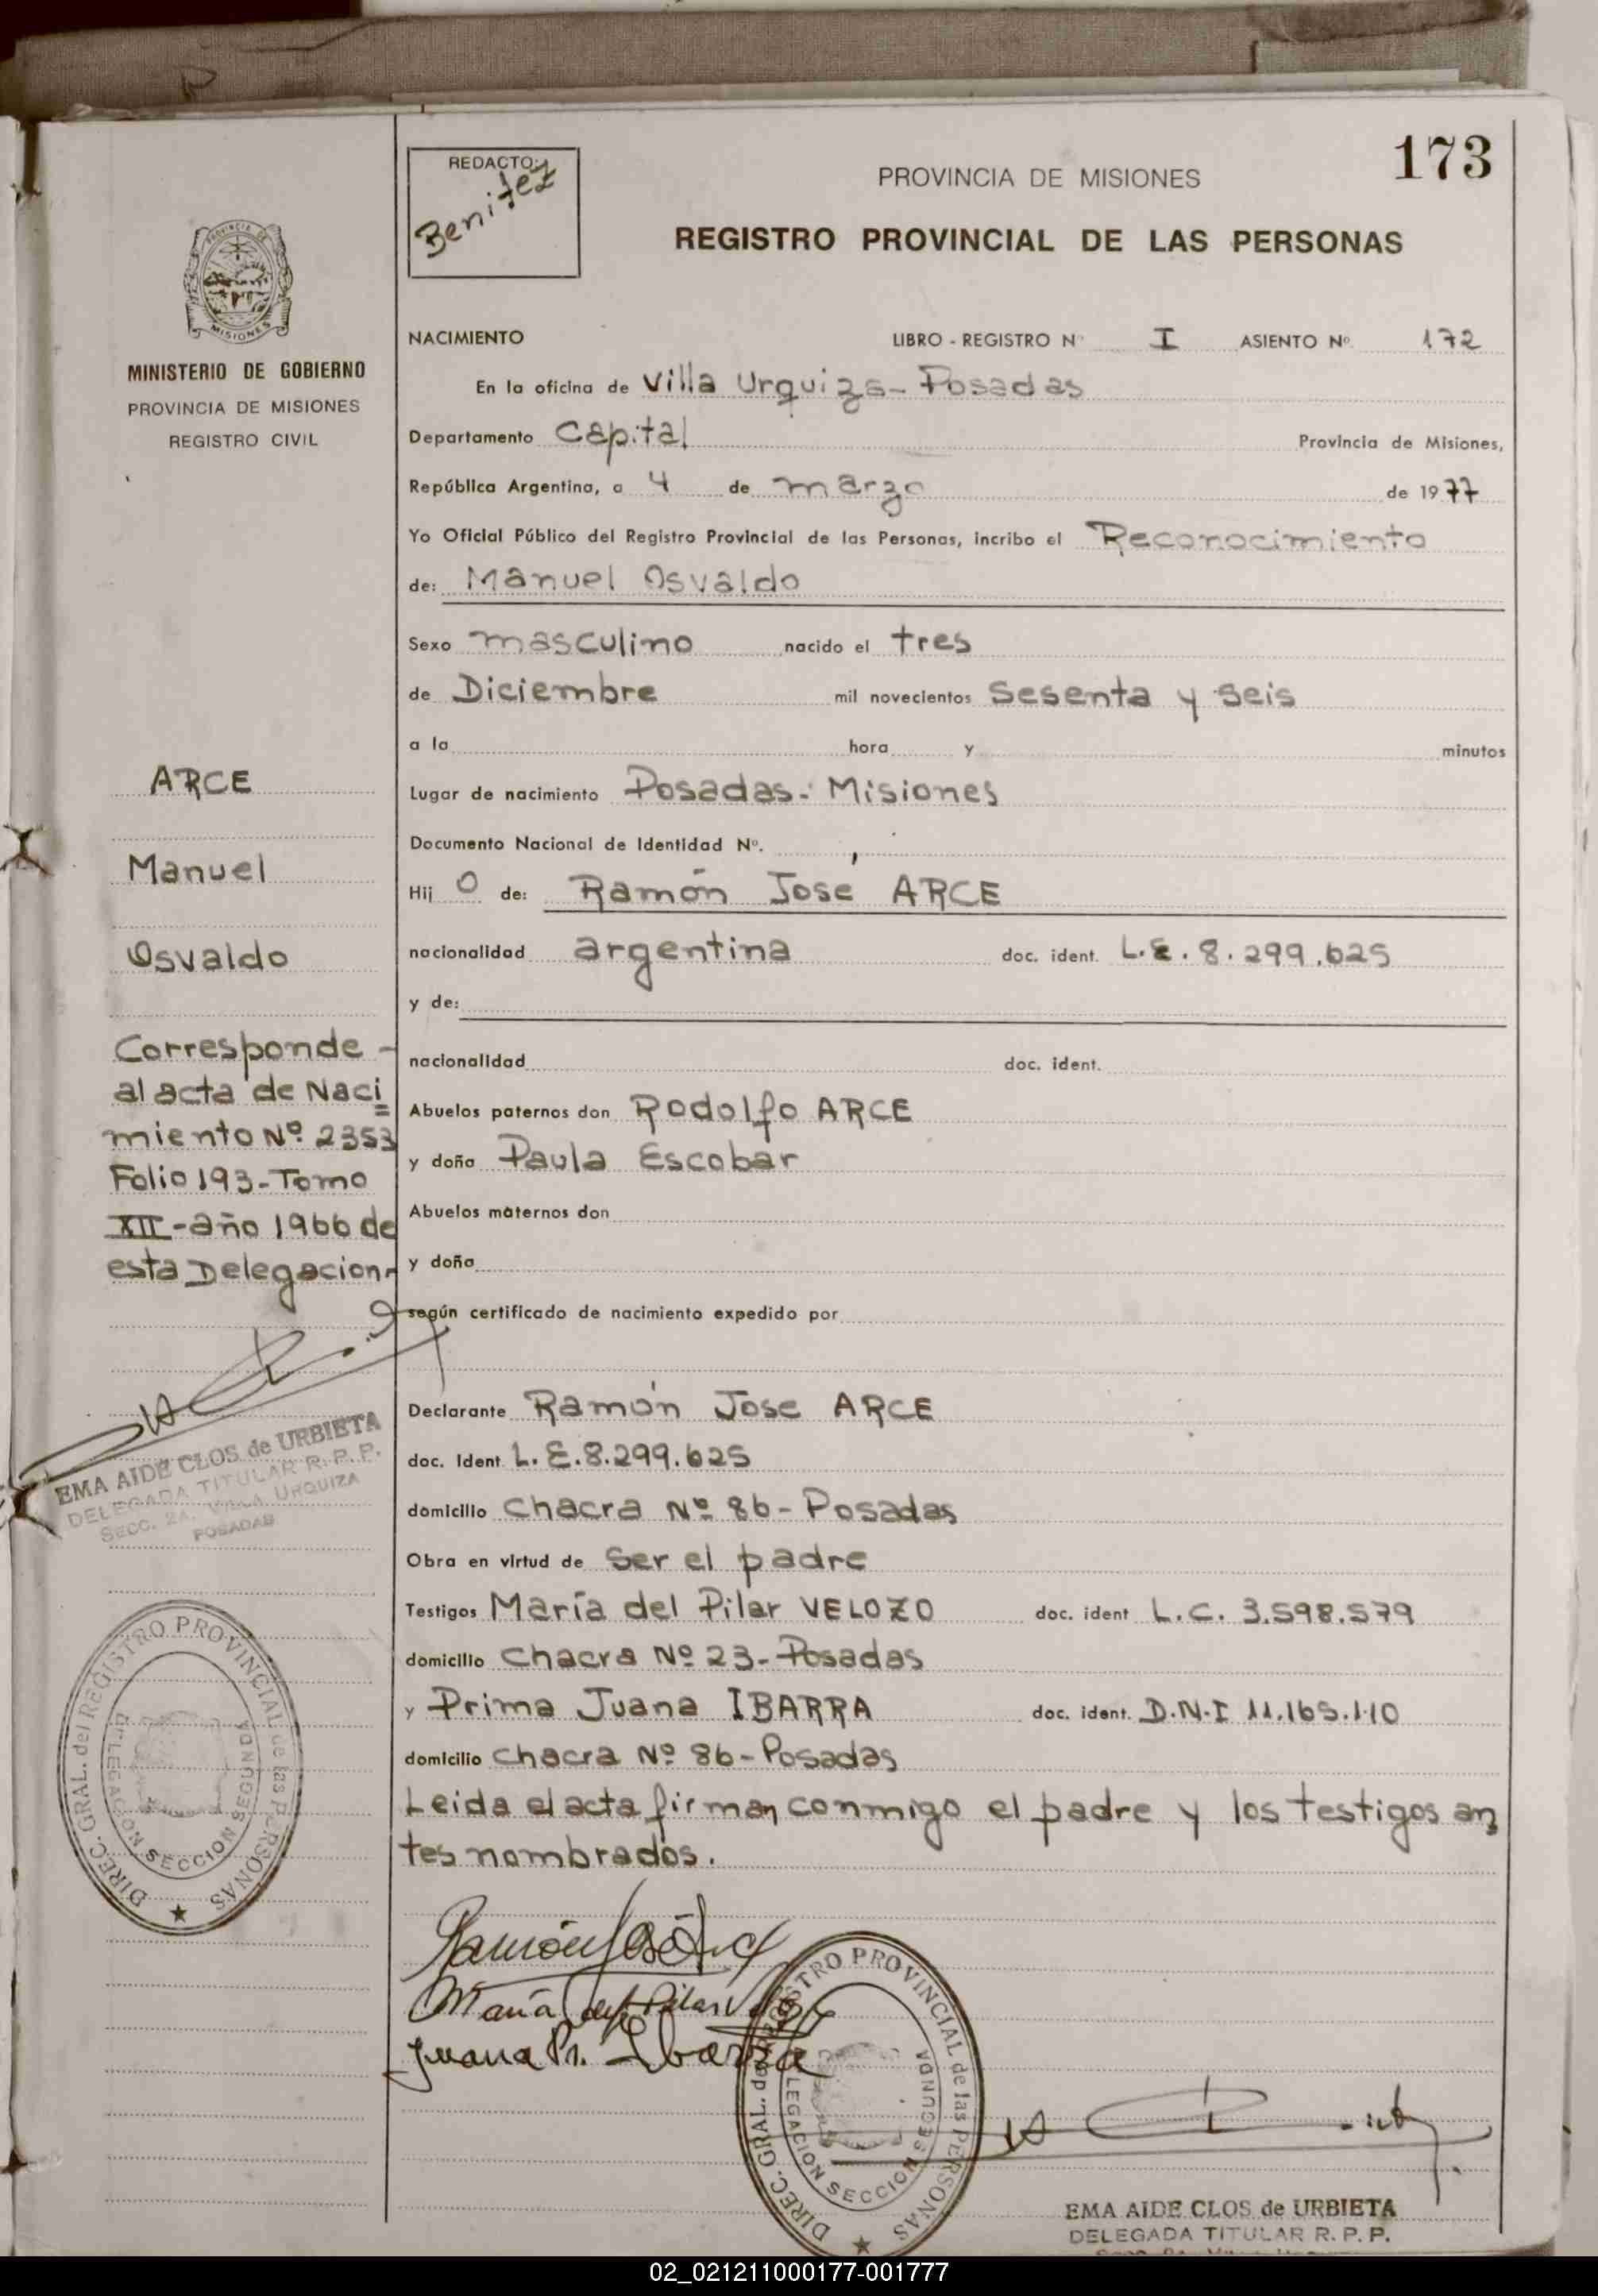 173
REDACTO:
Benitez
PROVINCIA DE MISIONES
REGISTRO PROVINCIAL DE LAS PERSONAS
PROVINCIA DE
MISIONES
MINISTERIO DE GOBIERNO
PROVINCIA DE MISIONES
REGISTRO CIVIL
NACIMIENTO LIBRO - REGISTRO Nº I ASIENTO Nº 172
En la oficina de Villa Urquiza - Posadas
Departamento Capital Provincia de Misiones,
República Argentina, a 4 de marzo de 1977
Yo Oficial Público del Registro Provincial de las Personas, incribo el Reconocimiento
de: Manuel Osvaldo
Sexo masculino nacido el tres
de Diciembre mil novecientos Sesenta y seis
a la hora y minutos
Lugar de nacimiento Posadas - Misiones
Documento Nacional de Identidad Nº.
Hij o de: Ramón Jose ARCE
nacionalidad argentina doc. ident. L.E. 8.299.625
y de:
nacionalidad doc. ident.
Abuelos paternos don Rodolfo ARCE
y doña Paula Escobar
Abuelos maternos don
y doña
según certificado de nacimiento expedido por
Declarante Ramón Jose ARCE
doc. Ident L.E. 8.299.625
domicilio Chacra Nº 86 - Posadas
Obra en virtud de Ser el padre
Testigos María del Pilar VELOZO doc. ident L.C. 3.598.579
domicilio Chacra Nº 23 - Posadas
y Prima Juana IBARRA doc. ident. D.N.I 11.165.110
domicilio Chacra Nº 86 - Posadas
Leida el acta firman conmigo el padre y los testigos an
tes nombrados.
ARCE
Manuel
Osvaldo
Corresponde -
al acta de Naci
miento Nº 2353
Folio 193 - Tomo
XII - año 1966 de
esta Delegacion -
EMA AIDE CLOS de URBIETA
DELEGADA TITULAR R. P. P.
SECC. 2A. VILLA URQUIZA
POSADAS
DIREC. GRAL. del REGISTRO PROVINCIAL de las PERSONAS
DELEGACION SECCION SEGUNDA
Ramón José Arce
María del Pilar Velozo
Juana Pr. Ibarra
DIREC. GRAL. del REGISTRO PROVINCIAL de las PERSONAS
DELEGACION SECCION SEGUNDA
EMA AIDE CLOS de URBIETA
DELEGADA TITULAR R. P. P.
02_021211000177-001777